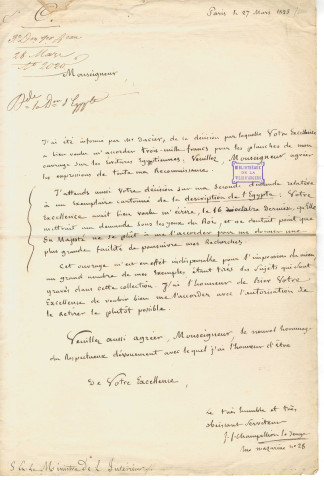 C.
Paris le 27 Mars
28 Mars
Monseigneur
J'ai été informé par de la décision par laquelle Votre Excellence
a bien voulu m'accorder trois mille francs pour les planches de mon
ouvrage sur les Écritures Égyptiennes. Veuillez Monseigneur agréer
les expressions de toute ma Reconnaissance.
BIBLIOTHÈQUE
DE LA
J'attends aussi Votre décision sur ma seconde demande relative
à un Exemplaire cartonné de la description de l'Égypte. Votre
Excellence avait bien voulu m'écrire, le 16 octobre dernier qu'elle
mettrait ma demande sous les yeux du Roi, et ne doutait point que
Sa Majesté ne se plût à me l'accorder pour me donner une
plus grande facilité de poursuivre mes Recherches.
Cet ouvrage m'est en effet indispensable pour l'impression du mien
un grand nombre de mes exemples étant tirés des sujets qui sont
gravés dans cette collection. J'ai l'honneur de prier Votre
Excellence de vouloir bien me l'accorder avec l'autorisation de
le retirer le plutôt possible.
Veuillez aussi agréer, Monseigneur, le nouvel hommage
du Respectueux dévouement avec lequel j'ai l'honneur d'être
de Votre Excellence,
le très humble et très
obéissant Serviteur
J. f Champollion le Jeune
rue mazarine n° 28
S. E. le Ministre de l'Intérieur